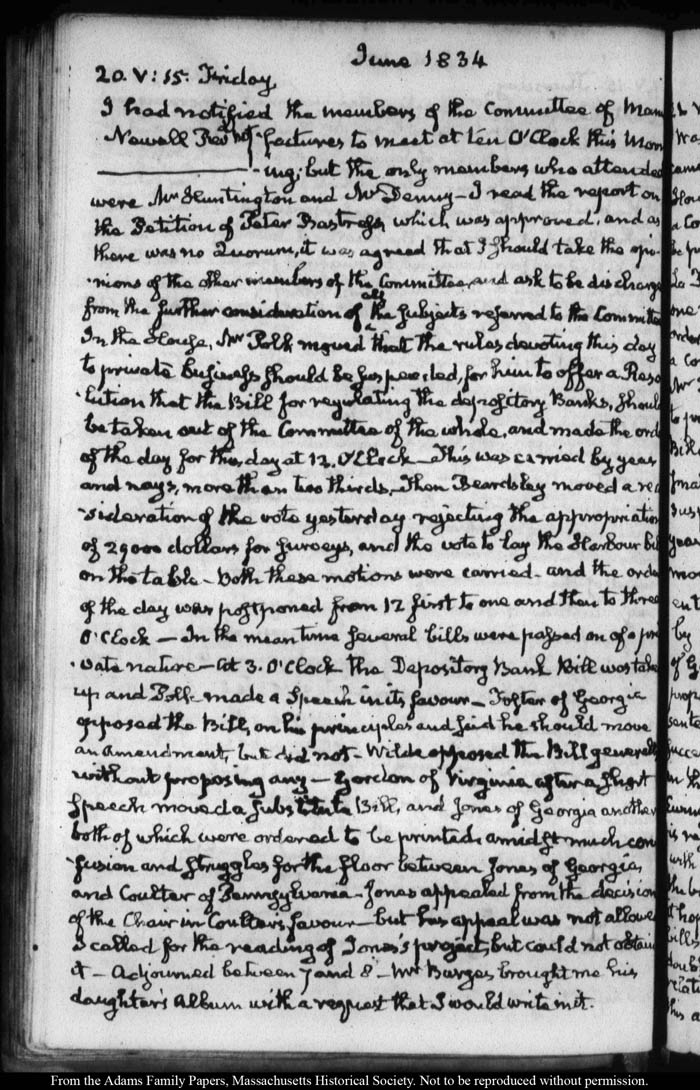 June 1834
20. V:15. Friday.
I had notified the members of the Committee of Man
Newell Revd Wm -factures to meet at ten O'Clock this Morn
-ing; but the only members who attended
were Mr Huntington and Mr Denny—I read the report on
the Petition of Peter Bastrofs, which was approved, and as
there was no Quorum, it was agreed that I should take the opi-
-nions of the other members of the Committee, and ask to be discharge
from the further consideration of all the subjects referred to the Committe
In the House, Mr Polk moved that the rules devoting this day
to private business should be suspended, for him to offer a Reso
-lution that the Bill for regulating the depository Banks, should
be taken out of the Committee of the whole, and made the ord
of the day for this day at 12. O'Clock—This was carried by yeas
and nays, more than two thirds. Then Beardsley moved a rec
-sideration of the vote yesterday rejecting the appropriation
of 29000 dollars for surveys, and the vote to lay the Harbour bill
on the table—both these motions were carried—and the orde
of the day was postponed from 12 first to one and then to three
O'Clock—In the mean time several bills were passed on of a pri
-vate nature—At 3. O'Clock the Depository Bank Bill was take
up and Polk made a Speech in its favour—Foster of Georgia
opposed the Bill, on his principles and said he should move
an amendment, but did not—Wilde opposed the Bill generally
without proposing any—Gordon of Virginia after a short
Speech moved a substitute Bill, and Jones of Georgia another
both of which were ordered to be printed, amidst much con
-fusion and struggles for the floor between Jones of Georgia,
and Coulter of Pennsylvania—Jones appealed from the decision
of the Chair in Coulter's favour—but his appeal was not allowed
I called for the reading of Jones's project, but could not obtain
it—Adjourned between 7 and 8—Mr Burges, brought me his
daughter's Album with a request that I would write in it.
From the Adams Family Papers, Massachusetts Historical Society. Not to be reproduced without permission.